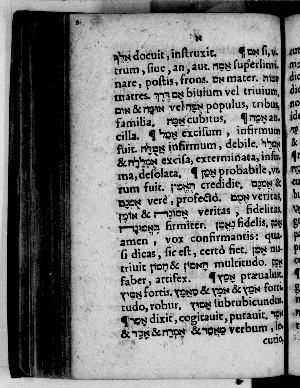 א
אלף docuit, instruxit. ¶ אם si, v-
trum, siue, an, aut. אמה superlimi-
nare, postis, frons. אם mater. אמות
matres. אם דרך biuium vel triuium,
אומה & אום vel אמה populus, tribus,
familia. אמה cubitus. ¶ אמה an-
cilla. ¶ אמל excisum, infirmum
fuit. אמלה infirmum, debile. אמלל
& אמללה excisa, exterminata, infir-
ma, desolata. ¶ אמן probabile, ve-
rum fuit. האמין credidit. אמנם
& אמנם verè, profectò. אמן veritas,
אומן & אמונה veritas, fidelitas.
באמונה firmiter. אמון fidelis,
amen, vox confirmantis: qua-
si dicas, sic est, certò fiet. אמן nu-
triuit המון & האמון multitudo. אמן
faber, artifex. ¶ אמץ præualuit.
אמיץ fortis. אמץ & מאמץ & אמצה forti-
tudo, robur. אמוץ subrubicundum.
¶ אמר dixit, cogitauit, putauit. אמר
& אמרה & מאמר & verbum, lo-
cutio,